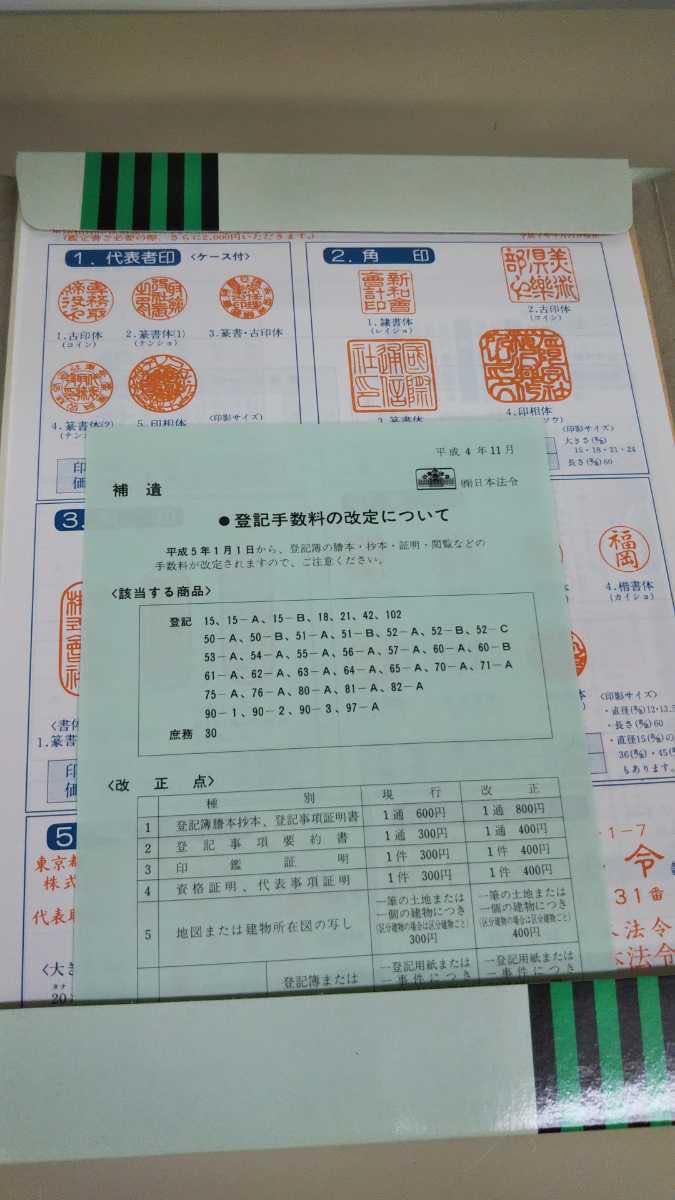 (鑑定書ご必要の際、さらに2,000円いただきます。)
1. 代表者印 〈ケース付〉
1. 古印体
(コイン)
2. 篆書体(1)
(テンショ)
3. 篆書・古印体
4. 篆書体(2)
5. 印相体
〈印影サイズ〉
2. 角印
1. 隷書体
(レイショ)
2. 古印体
(コイン)
4. 印相体
〈印影サイズ〉
大きさ(㎜)
15・18・21・24
長さ(㎜)60
平成4年11月
補遺
㈱日本法令
●登記手数料の改定について
平成5年1月1日から、登記簿の謄本・抄本・証明・閲覧などの
手数料が改定されますので、ご注意ください。
〈該当する商品〉
登記 15、15-A、15-B、18、21、42、102
50-A、50-B、51-A、51-B、52-A、52-B、52-C
53-A、54-A、55-A、56-A、57-A、60-A、60-B
61-A、62-A、63-A、64-A、65-A、70-A、71-A
75-A、76-A、80-A、81-A、82-A
90-1、90-2、90-3、97-A
庶務 30
〈改正点〉
種別 現行 改正
1 登記簿謄本抄本、登記事項証明書 1通 600円 1通 800円
2 登記事項要約書 1通 300円 1通 400円
3 印鑑証明 1件 300円 1件 400円
4 資格証明、代表事項証明 1件 300円 1件 400円
5 地図または建物所在図の写し
一筆の土地または
一個の建物につき
(区分建物の場合は区分建物ごと)
300円
一筆の土地または
一個の建物につき
(区分建物の場合は区分建物ごと)
400円
登記簿または
一登記用紙または
一事件につき
一登記用紙または
一事件につき
3.
〈書体
1. 篆書
福岡
4. 楷書体
(カイショ)
〈印影サイズ〉
・直径(㎜)12・13.5
・長さ(㎜)60
・直径15(㎜)の
36(㎜)・45(㎜
もあります。
5
東京都
株式
代表取
〈大き
1-7
令
31番
法令
法令